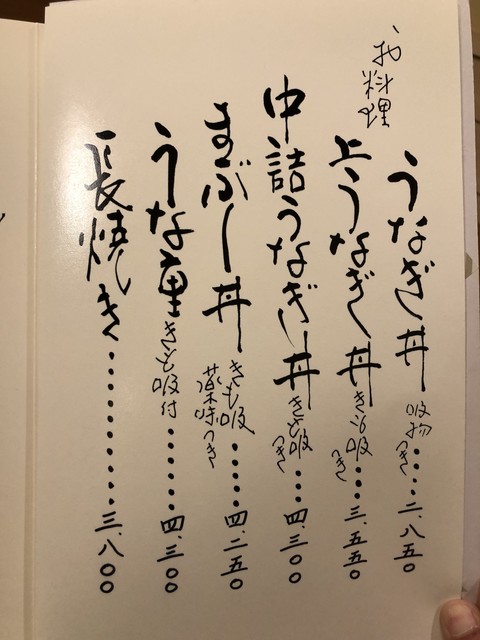 お料理
うなぎ丼 吸物つき……二、八五〇
上うなぎ丼 きも吸つき……三、五五〇
中詰うなぎ丼 きも吸つき……四、三〇〇
まぶし丼 きも吸 薬味つき……四、二五〇
うな重 きも吸付……四、三〇〇
長焼き…………三、八〇〇